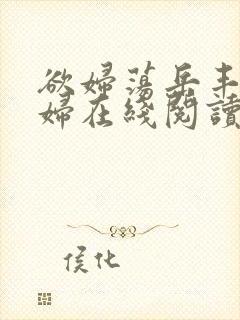 欲婦蕩岳丰
婦在綫閱讀
侯化